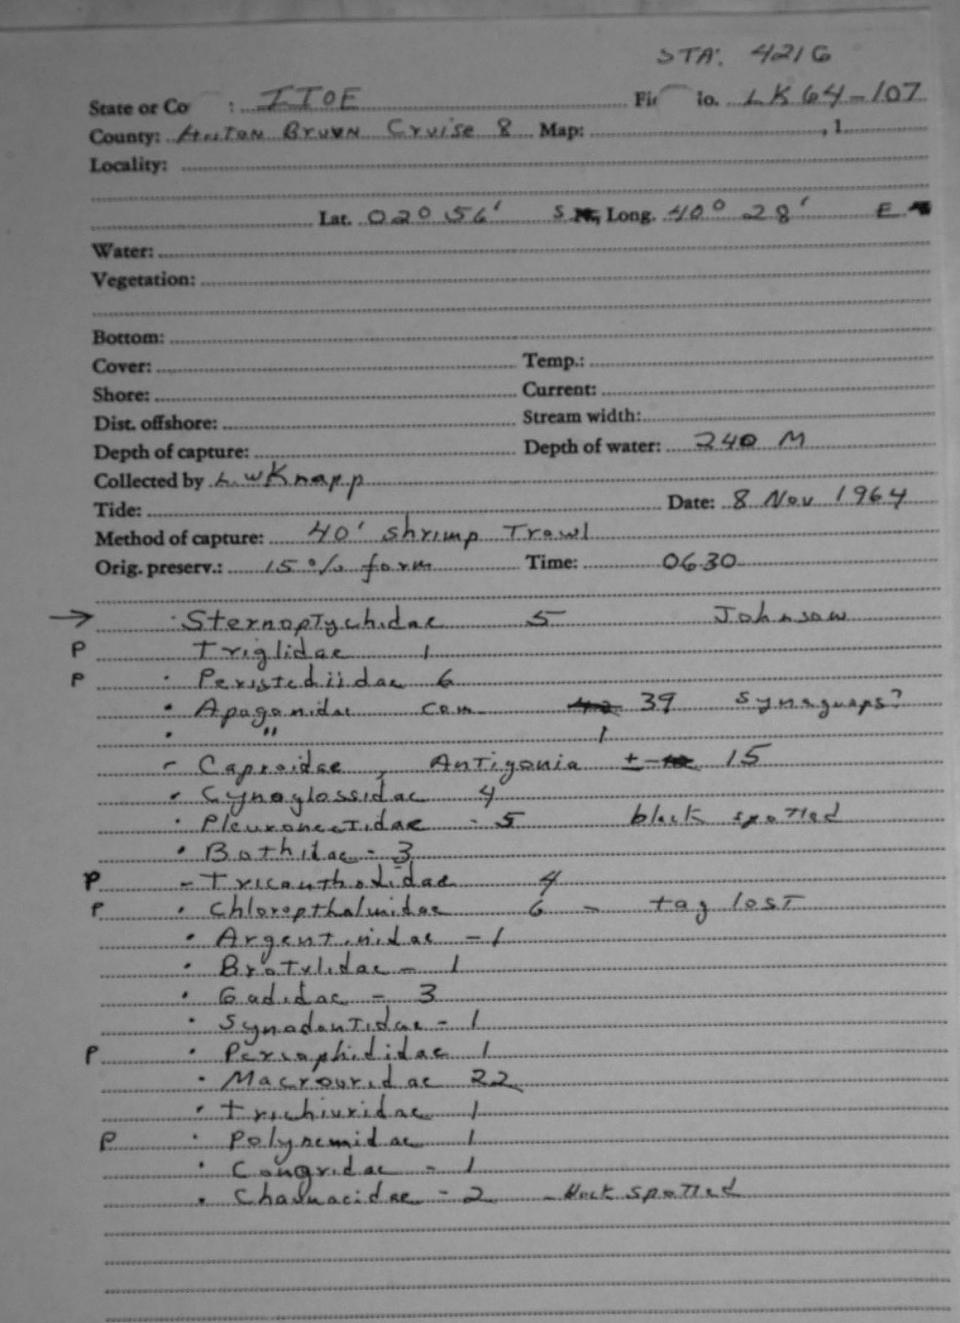 STA. 421G
State or Co : IIOE Fi io. LK 64-107
County: Anton Bruun Cruise 8 Map: , 1
Locality:
Lat. 02° 56' S Long. 40° 28' E
Water:
Vegetation:
Bottom:
Cover: Temp.:
Shore: Current:
Dist. offshore: Stream width:
Depth of capture: Depth of water: 240 M
Collected by L.W Knapp
Tide: Date: 8 Nov 1964
Method of capture: 40' shrimp Trawl
Orig. preserv.: 15% form Time: 0630
→ · Sternoptychidae 5 Johnson
P Triglidae 1
P · Peristediidae 6
· Apogonidae com 39 synagrops?
· " 1
- Caproidae, Antigonia ± 15
· Cynoglossidae 4
· Pleuronectidae - 5 black spotted
· Bothidae - 3
P - Tricanthodidae 4
P · Chloropthalmidae 6 - tag lost
· Argentinidae - 1
· Brotulidae - 1
· Gadidae - 3
· Synodontidae - 1
P · Percophididae 1
· Macrouridae 22
· Trichiuridae 1
P · Polynemidae 1
· Congridae - 1
· Chaunacidae - 2 - black spotted